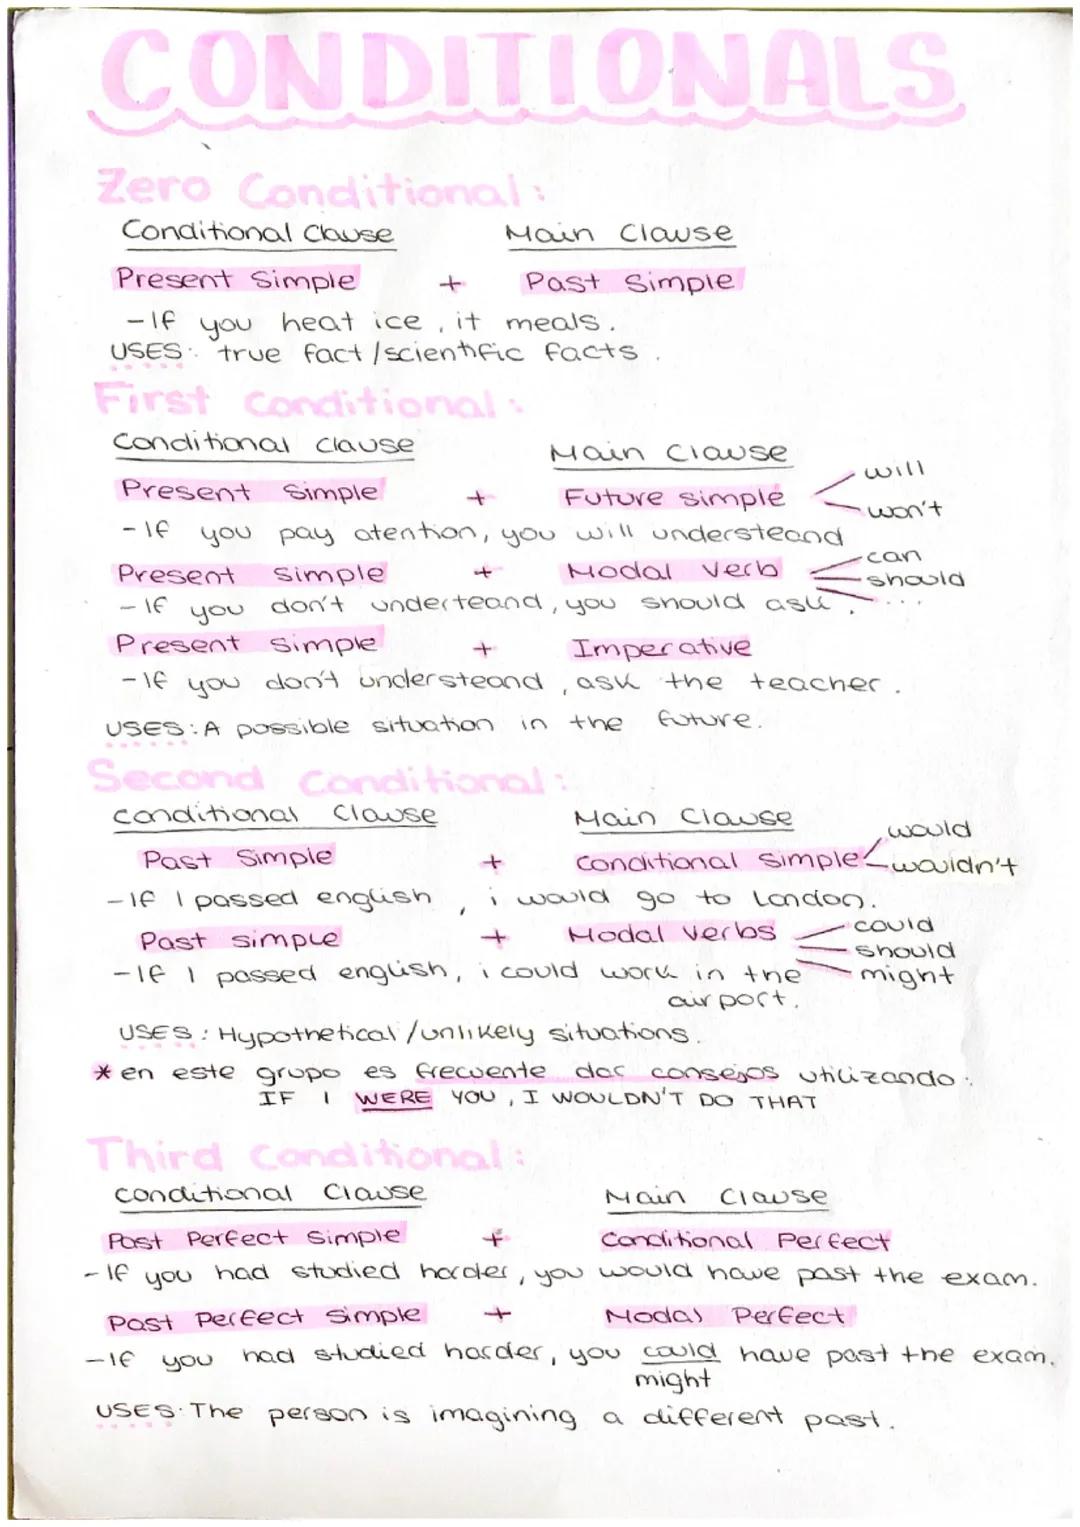 CONDITIONALS
Zero Conditional:
Conditional Clause Main Clause
Present Simple + Past Simple
-If you heat ice, it meals.
USES: true fact/scientific facts.
First Conditional:
Conditional clause Main Clause
Present Simple + Future simple will
won't
-If you pay atention, you will understeand
Present simple + Modal verb can
should
...
-If you don't underteand, you should ask.
Present simple + Imperative
-If you don't understeand, ask the teacher.
USES: A possible situation in the future.
Second Conditional:
conditional Clause Main Clause
Past Simple + conditional simple would
wouldn't
-If I passed english, i would go to London.
Past simple + Modal verbs could
should
might
-If I passed english, i could work in the
airport.
USES: Hypothetical/unlikely situations.
* en este grupo es frecuente dar consejos utilizando:
IF I WERE YOU, I WOULDN'T DO THAT
Third Conditional:
conditional Clause Main Clause
Past Perfect Simple + Conditional Perfect
-If you had studied harder, you would have past the exam.
Past Perfect Simple + Modal Perfect
-If you had studied harder, you could have past the exam.
might
USES: The person is imagining a different past.